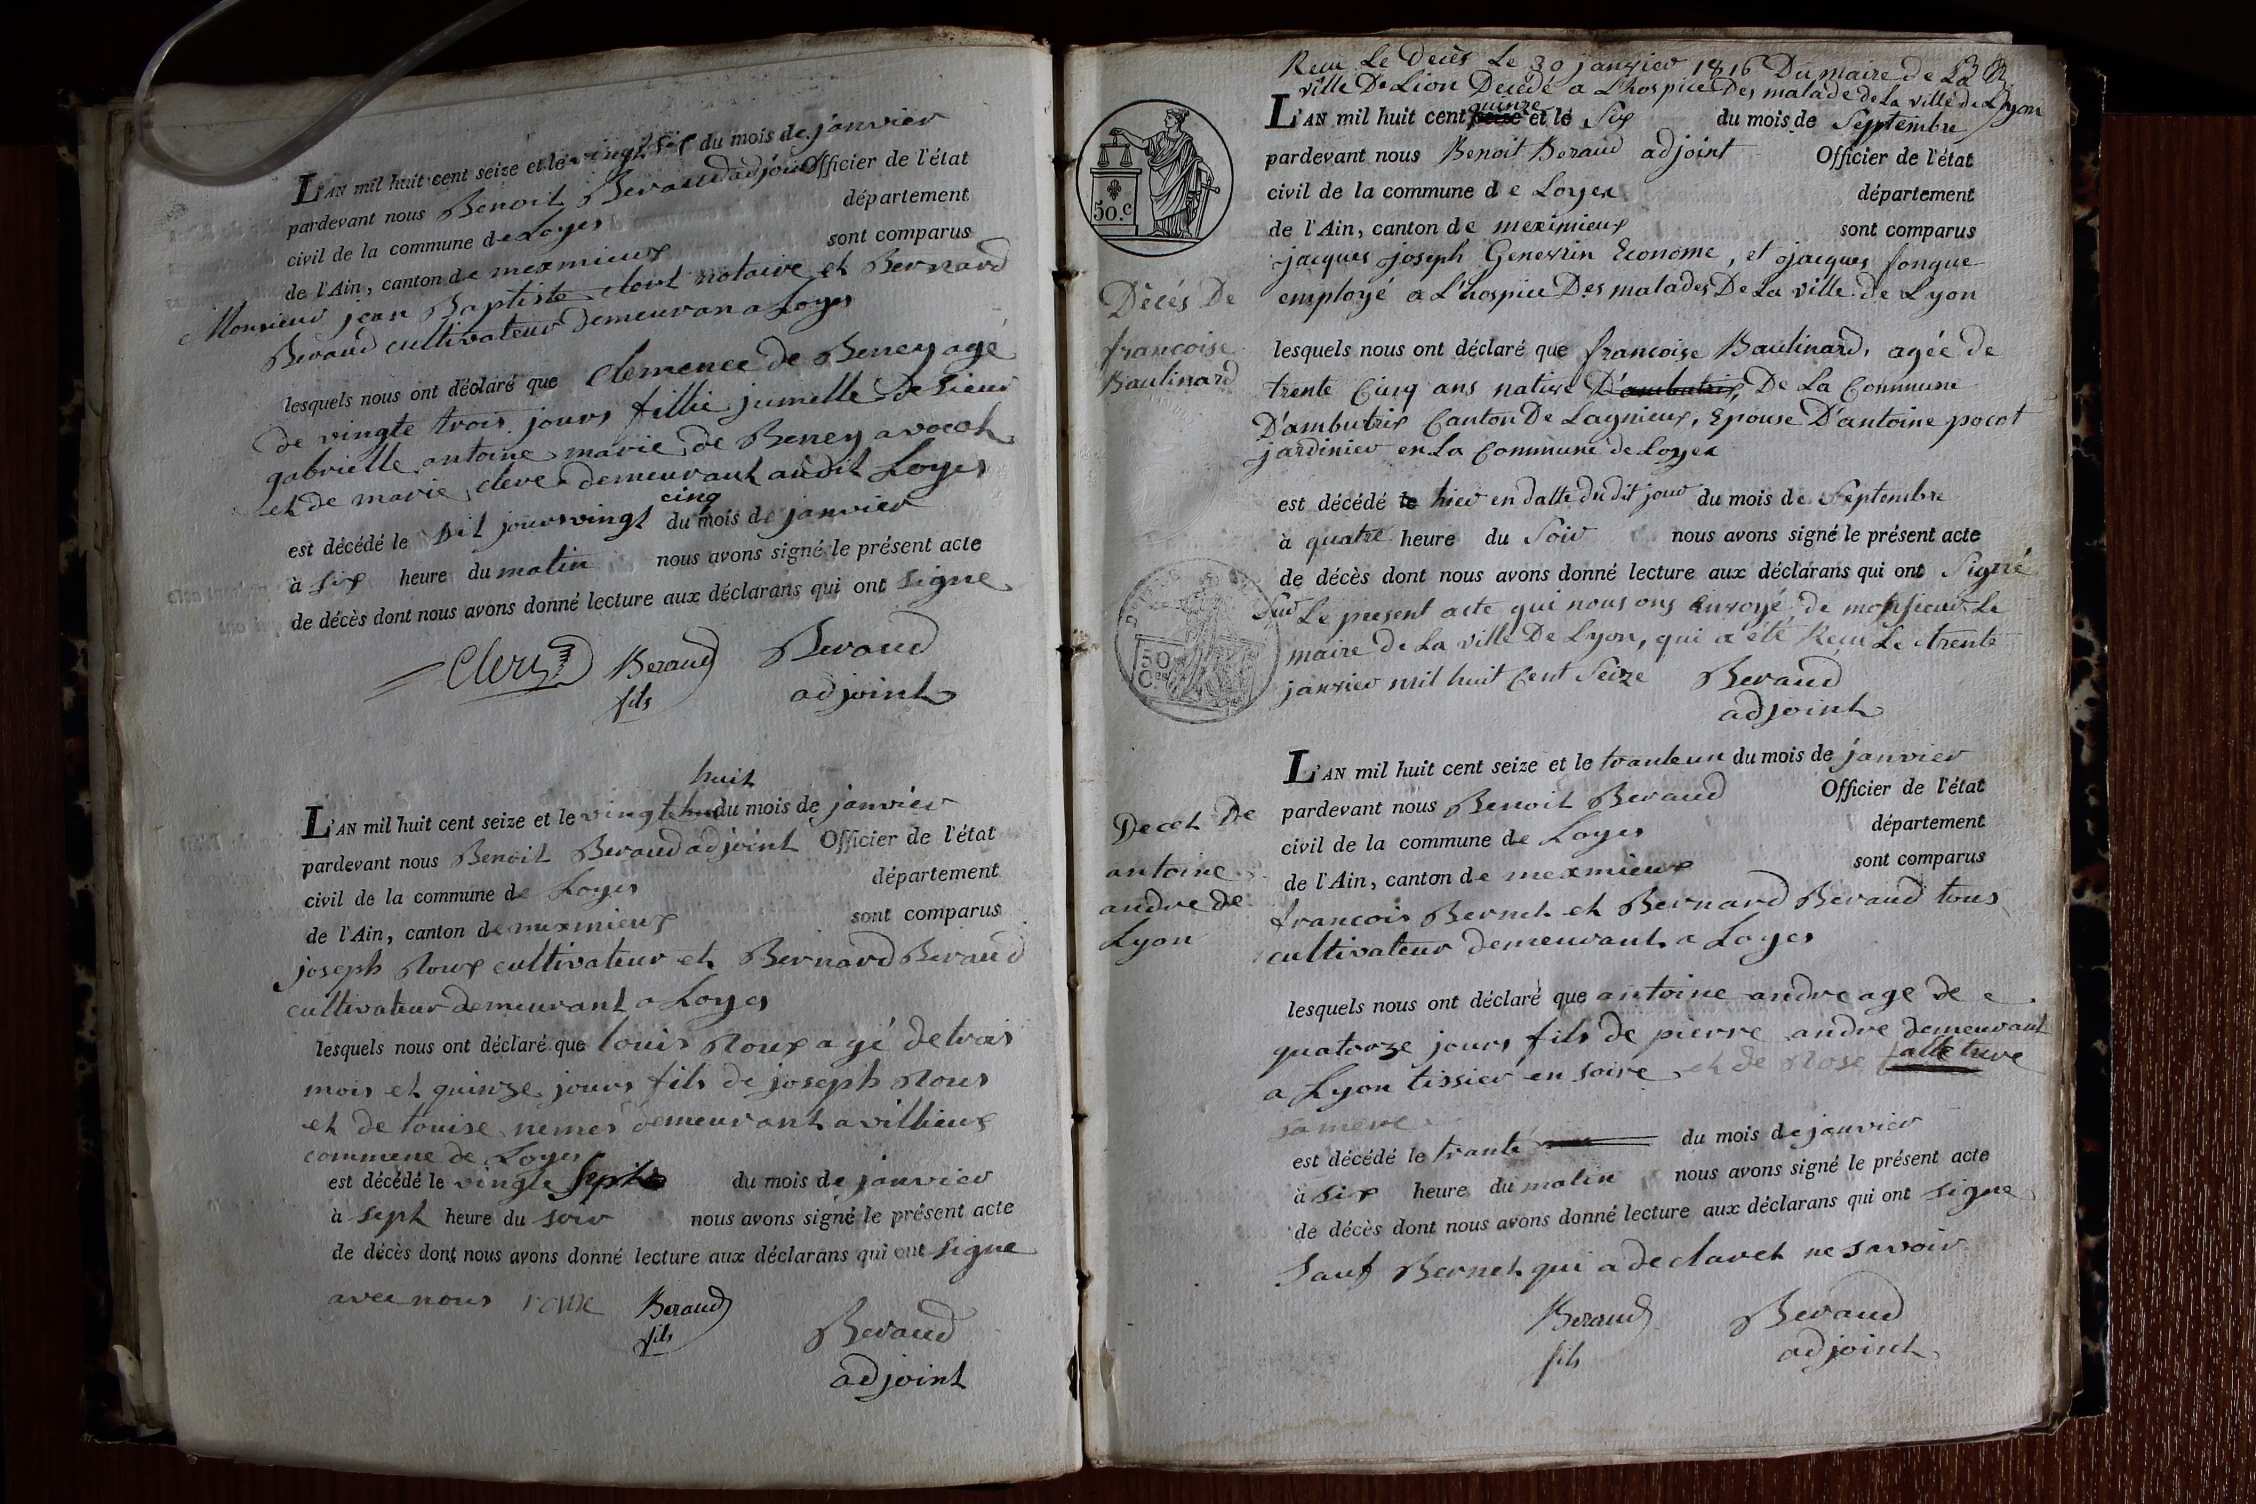 L'AN mil huit cent seize et le vingt six du mois de janvier
pardevant nous Benoit Beraud adjoint Officier de l'état
civil de la commune de Loyes département
de l'Ain, canton de meximieux sont comparus
Monsieur jean Baptiste notaire et Bernard
Beraud cultivateur demeuran a Loyes
lesquels nous ont déclaré que clemence de Beney agé
de vingte trois jours fillie jumelle de sieur
gabrielle antoine marie de Beney avocat
et de marie clere demeurant audit Loyes
cinq
est décédé le dit jour vingt du mois de janvier
à six heure du matin nous avons signé le présent acte
de décès dont nous avons donné lecture aux déclarans qui ont signe
Clerc Beraud Beraud
fils adjoint
huit
L'AN mil huit cent seize et le vingt du mois de janvier
pardevant nous Benoit Beraud adjoint Officier de l'état
civil de la commune de Loyes département
de l'Ain, canton de meximieux sont comparus
joseph Roux cultivateur et Bernard Beraud
cultivateur demeurant a Loyes
lesquels nous ont déclaré que louis Roux agé de trois
mois et quinze jours fils de joseph Roux
et de louise nemes demeurant a villieux
commune de Loyes
est décédé le vingte sept du mois de janvier
à sept heure du soir nous avons signé le présent acte
de décès dont nous avons donné lecture aux déclarans qui ont signe
avec nous roux Beraud Beraud
fils adjoint
Recu Le Decès Le 30 janvier 1816 Du maire de La
ville De Lion Décédé a L'hospice Des malade de La ville de Lyon
quinze
L'AN mil huit cent seize et le Six du mois de Septembre
pardevant nous Benoit Beraud adjoint Officier de l'état
civil de la commune de Loyes département
de l'Ain, canton de meximieux sont comparus
jacques joseph Genevrin Econome, et jacques fonque
employé a L'hospice Des malades De La ville de Lyon
50.c
Décés De
françoise
Baulinard
lesquels nous ont déclaré que francoise Baulinard, agée de
trente Cinq ans native D'ambutrix, De La Commune
D'ambutrix Canton De Lagnieux, Epouse D'antoine pocot
jardinier en La Commune de Loyes
est décédé le hier en datte du dit jour du mois de Septembre
à quatre heure du Soir nous avons signé le présent acte
de décès dont nous avons donné lecture aux déclarans qui ont Signé
Sur Le present acte qui nous ons Envoyé de monsieur Le
maire de La ville De Lyon, qui a été Recu Le trente
janvier mil huit Cent Seize Beraud
adjoint
50
C.es
L'AN mil huit cent seize et le tranteun du mois de janvier
pardevant nous Benoit Beraud Officier de l'état
civil de la commune de Loyes département
de l'Ain, canton de meximieux sont comparus
francois Bernet et Bernard Beraud tous
cultivateur demeurant a Loyes
Decet De
antoine
andre de
Lyon
lesquels nous ont déclaré que antoine andre age de
quatorze jours fils de pierre andre demeurant
a Lyon tissier en soire et de Rose
sa mere
est décédé le tranté du mois de janvier
à six heure du matin nous avons signé le présent acte
de décès dont nous avons donné lecture aux déclarans qui ont signe
Sauf Bernet qui a declaret ne savoir
Beraud Beraud
fils adjoint